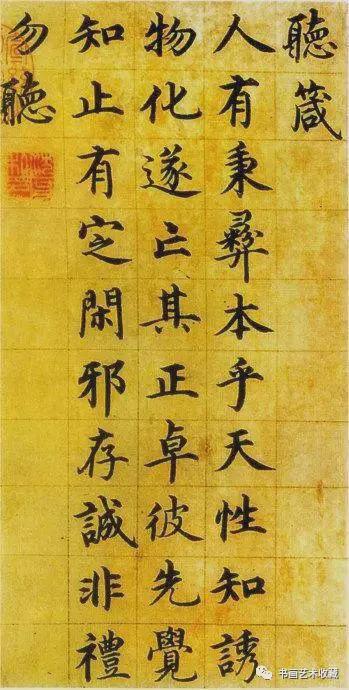 聽箴
人有秉彝本乎天性知誘
物化遂亡其正卓彼先覺
知止有定閑邪存誠非禮
勿聽
书画艺术收藏